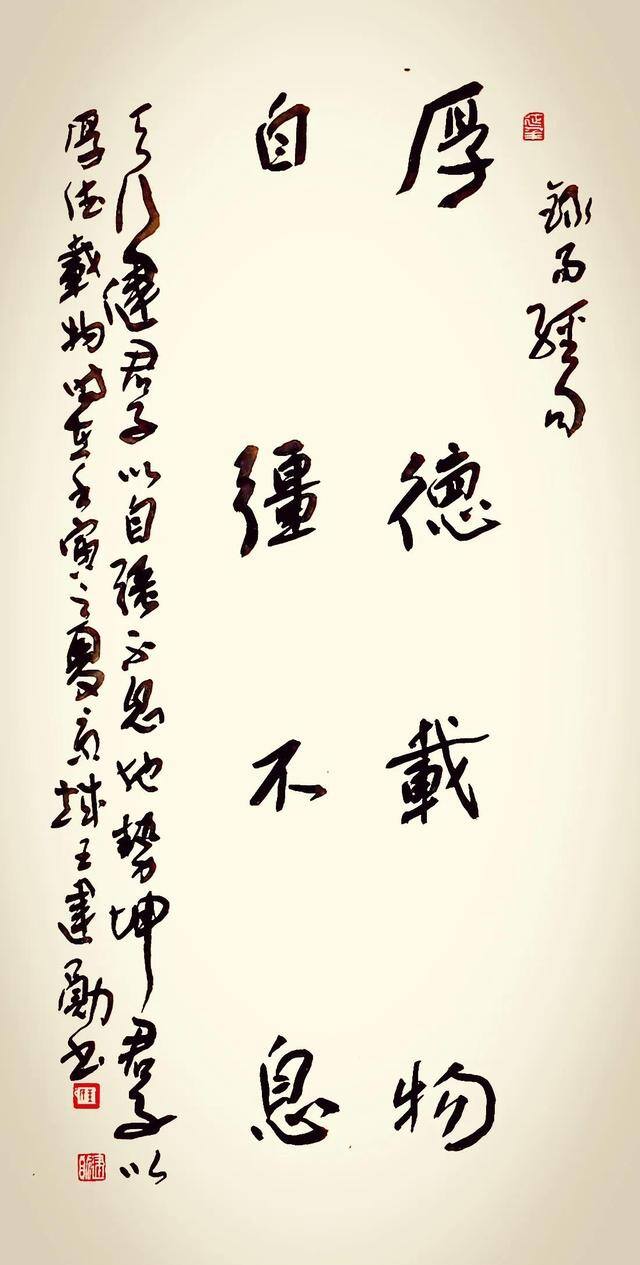 錄易經句
厚德載物
自彊不息
天行健君子以自強不息地勢坤君子以
厚德載物時在壬寅之夏京城王建書